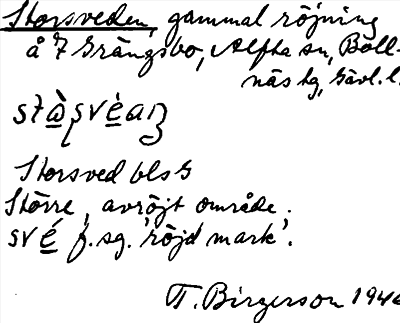 Storsveden, gammal röjning
å 7 Grängsbo, Alfta sn, Boll-
näs tg, Gävl. l.
Storsved bls G
Större, avröjt område.
f. sg. 'röjd mark'.
T. Birgerson 194